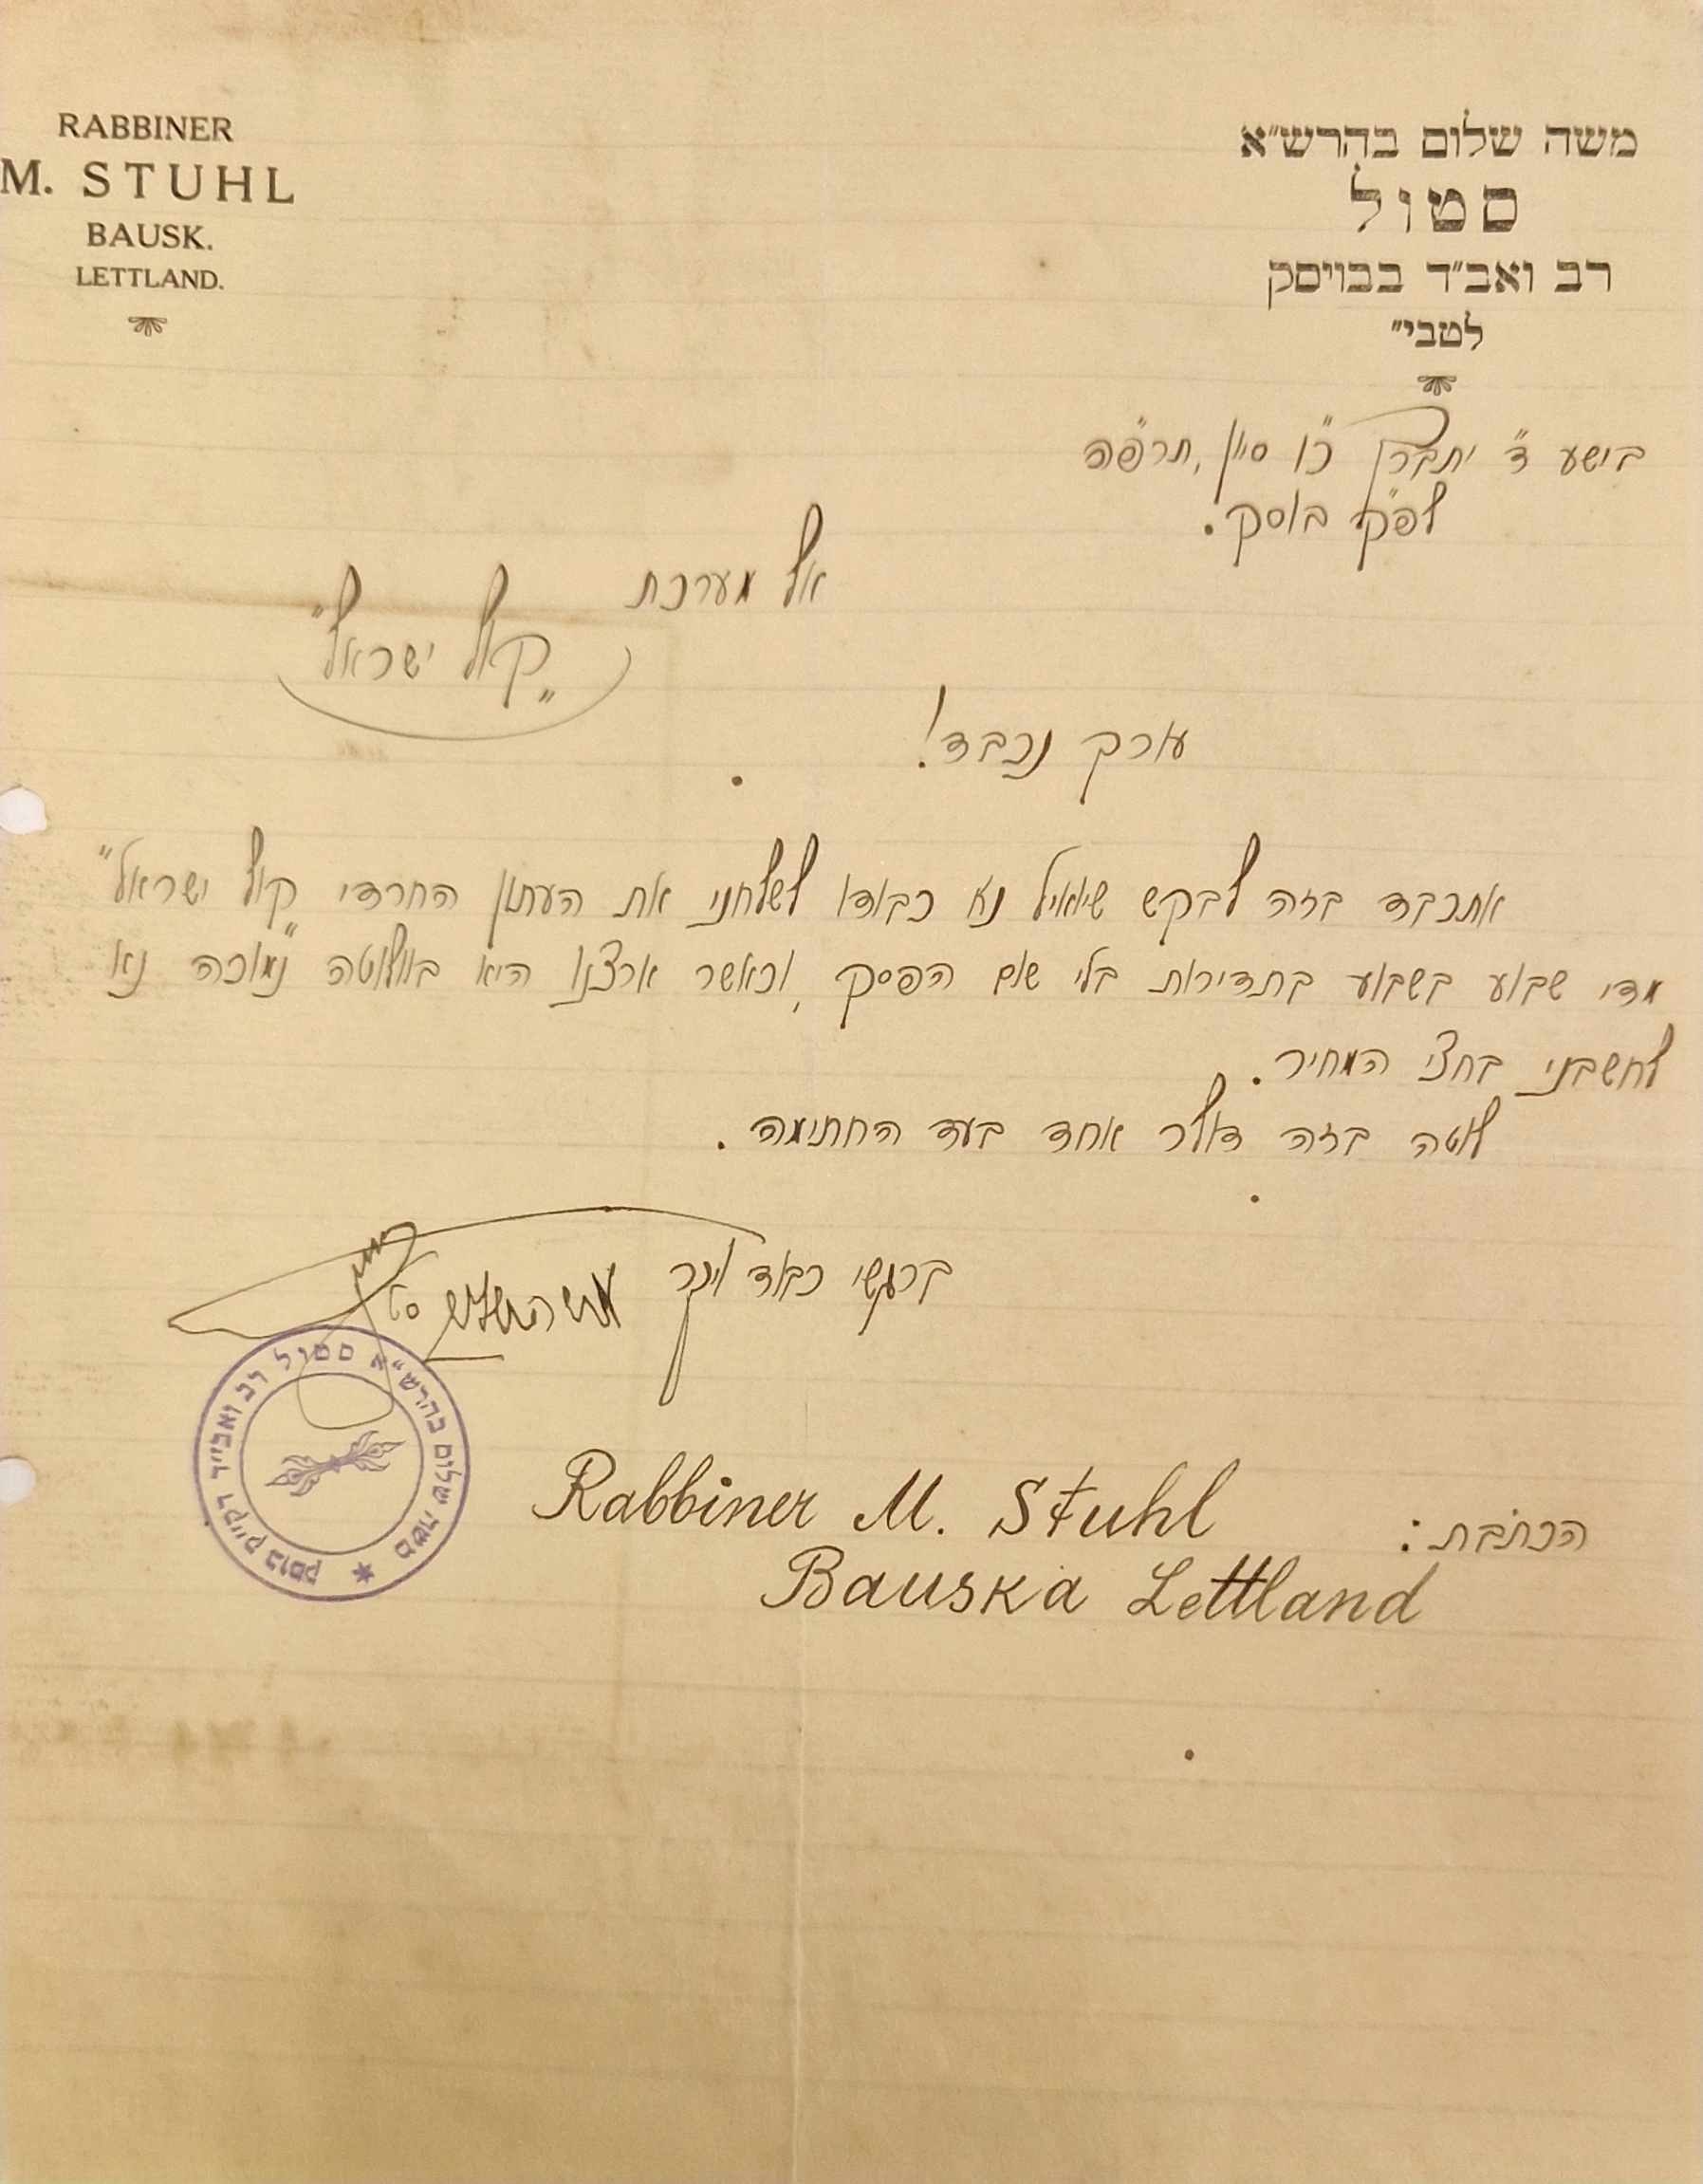 RABBINER
M. STUHL
BAUSK.
LETTLAND.
משה שלום בהרש"א
סטול
רב ואב"ד בבויסק
לטבי"
בישע ד' יתברך כ"ו סיון, תרפ"ה
לפ"ק בוסק.
אל מערכת
"קול ישראל"
עורך נכבד!
אתכבד בזה לבקש שיואיל נא כבודו לשלחני את העתון החרדי "קול ישראל"
מדי שבוע בשבוע בתדירות בלי שום הפסק, וכאשר ארצנו היא בוולוטה נמוכה נא
לחשבני בחצי המחיר.
לוטה בזה דולר אחד בעד החתימה.
ברגשי כבוד ויקר
משה שלום בהרש"א סטול רב ואבי"ד דק"ק בוסק
הכתבת:
Rabbiner M. Stuhl
Bauska Lettland